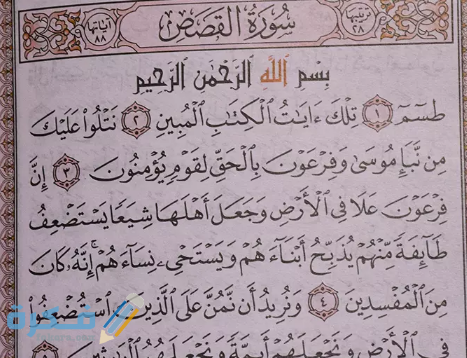 ترتيبها ٢٨ سُورَةُ القَصَصِ آياتها ٨٨
بِسْمِ اللَّهِ الرَّحْمَٰنِ الرَّحِيمِ
طسٓمٓ ١ تِلْكَ ءَايَٰتُ ٱلْكِتَٰبِ ٱلْمُبِينِ ٢ نَتْلُوا۟ عَلَيْكَ
مِن نَّبَإِ مُوسَىٰ وَفِرْعَوْنَ بِٱلْحَقِّ لِقَوْمٍ يُؤْمِنُونَ ٣ إِنَّ
فِرْعَوْنَ عَلَا فِى ٱلْأَرْضِ وَجَعَلَ أَهْلَهَا شِيَعًا يَسْتَضْعِفُ
طَآئِفَةً مِّنْهُمْ يُذَبِّحُ أَبْنَآءَهُمْ وَيَسْتَحْىِۦ نِسَآءَهُمْ إِنَّهُۥ كَانَ
مِنَ ٱلْمُفْسِدِينَ ٤ وَنُرِيدُ أَن نَّمُنَّ عَلَى ٱلَّذِينَ ٱسْتُضْعِفُوا۟
فِى ٱلْأَرْضِ وَنَجْعَلَهُمْ أَئِمَّةً وَنَجْعَلَهُمُ ٱلْوَٰرِثِينَ
فكرة